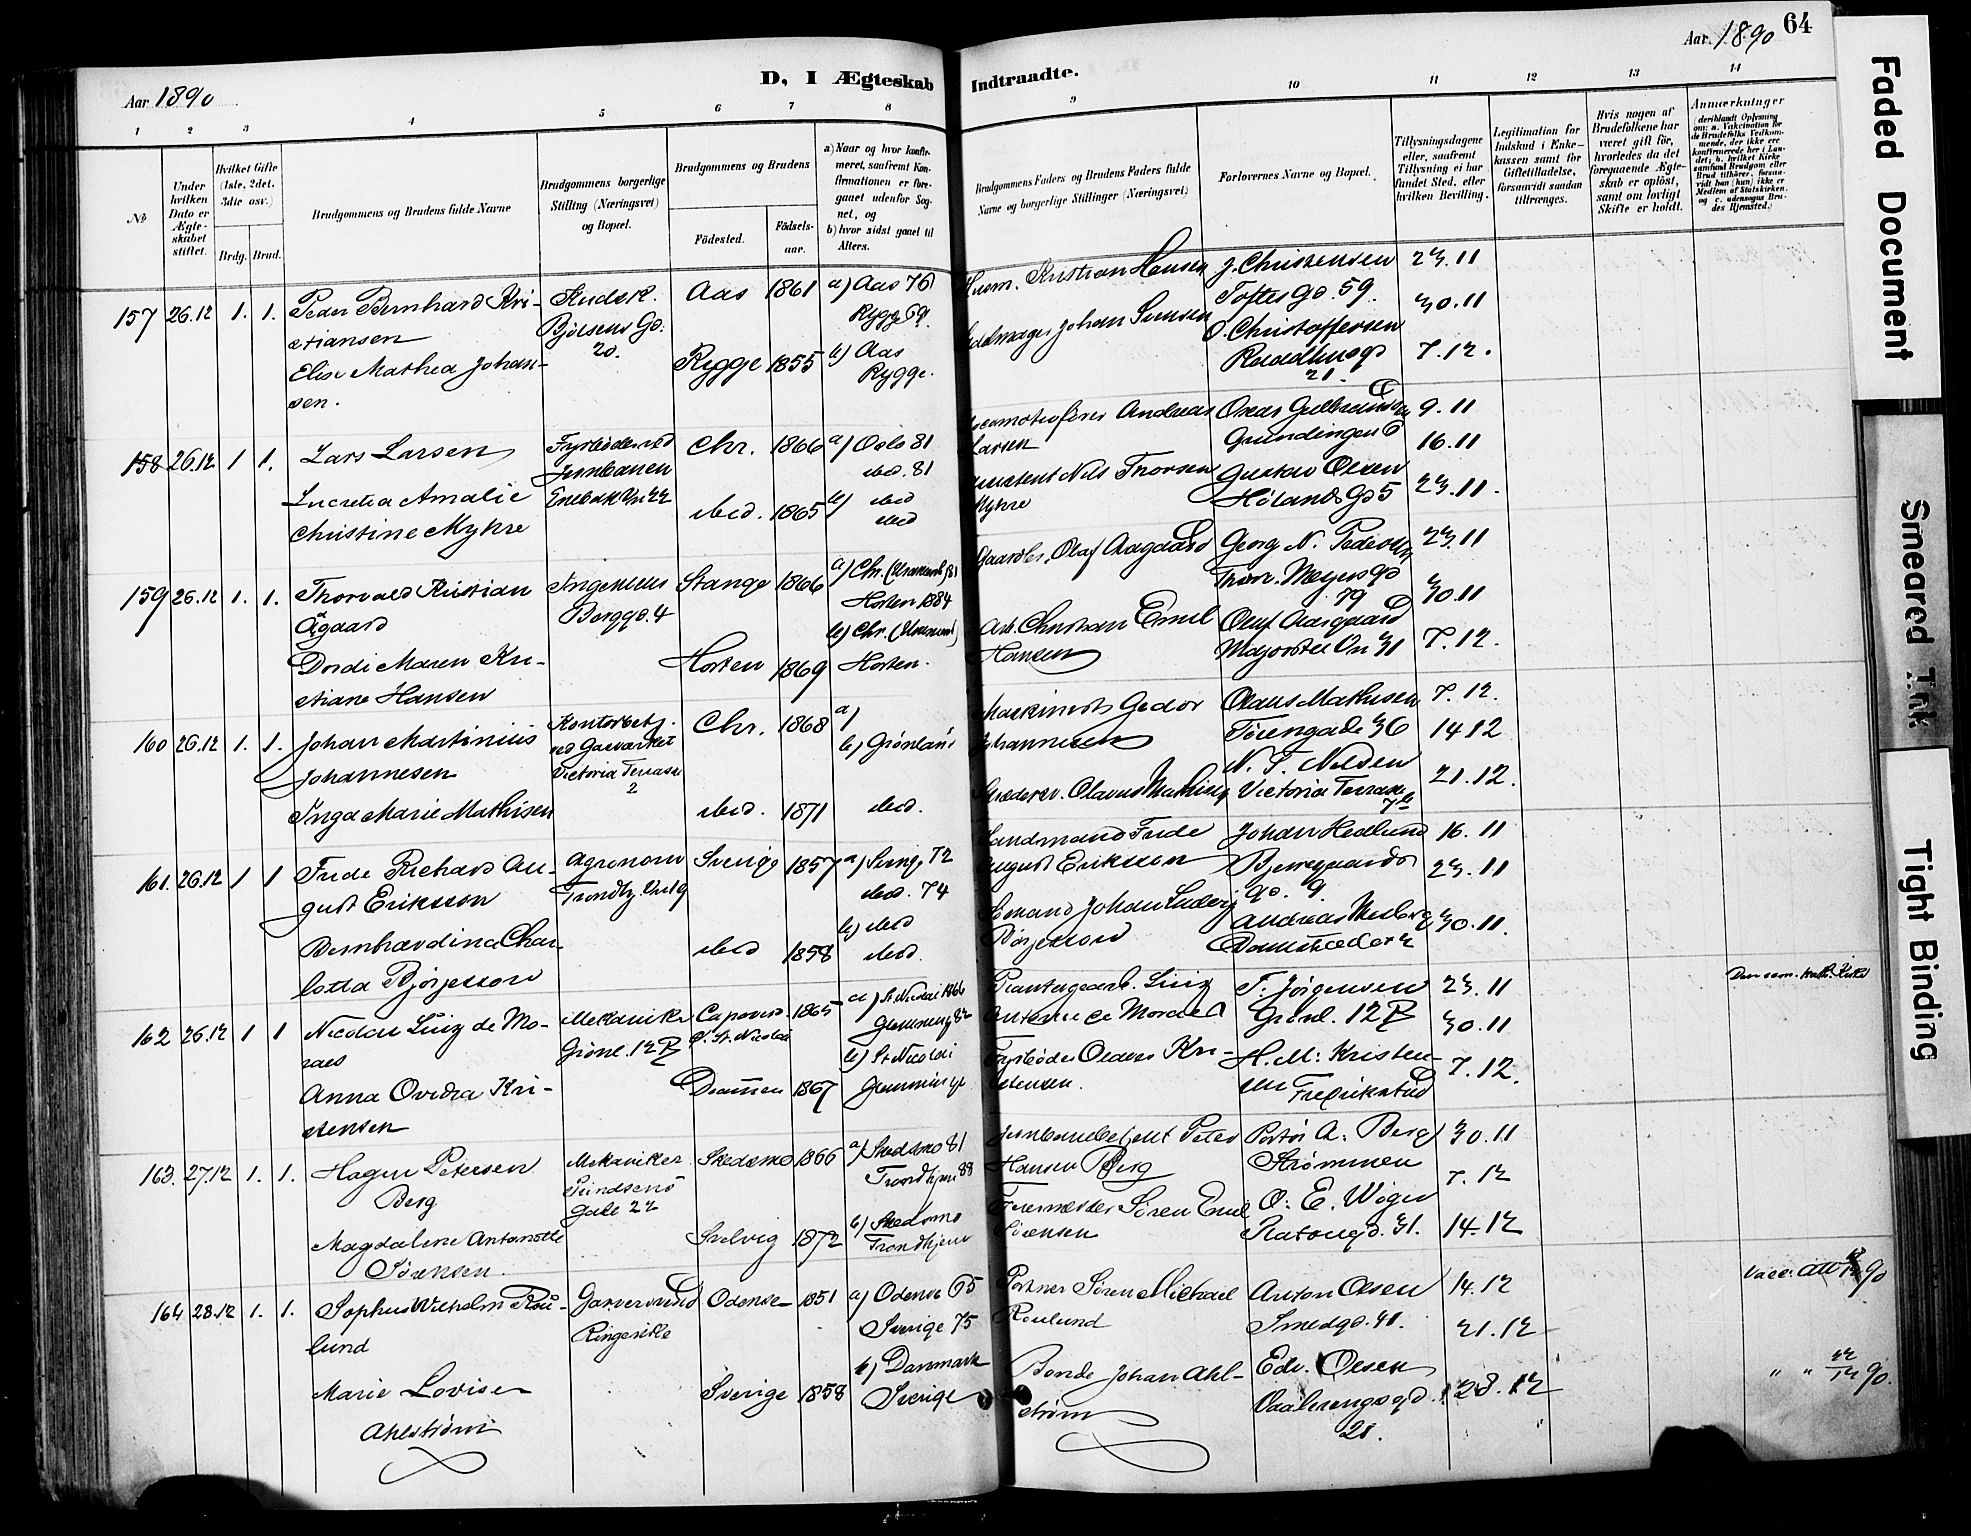 Aar 1890
D, I Ægteskab Indtraadte.
Aar 1890 64
1 2 3 4 5 6 7 8 9 10 11 12 13 14
No
Under hvilken Dato er Ægteskabet stiftet.
Hvilket Gifte (1ste, 2det, 3die osv.)
Brdg. Brud.
Brudgommens og Brudens fulde Navne
Brudgommens borgerlige Stilling (Næringsvei) og Bopæl.
Brudgommens og Brudens
Födested.
Födsels-aar.
a) Naar og hvor konfir-
meret, saafremt Kon-
firmationen er fore-
gaaet udenfor Sog-
net, og
b) hvor sidst gaaet til
Alters.
Brudgommens Faders og Brudens Faders fulde
Navne og borgerlige Stillinger (Næringsvei)
Forlovernes Navne og Bopæl.
Tillysningsdagene
eller, saafremt
Tillysning ei har
fundet Sted, efter
hvilken Bevilling.
Legitimation for
Indskud i Enke-
kassen samt for
Giftetilladelse,
forsaavidt saadan
tiltrænges.
Hvis nogen af
Brudefolkene har
været gift før,
hvorledes da det
foregaaende Ægte-
skab er opløst,
samt om lovligt
Skifte er holdt.
Anmærkninger
(deriblandt Oplysning
om: a. Vakcination for
de Brudefolks Vedkom-
mende, der ikke ere
konfirmerede her i Lan-
det; b. hvilket Kirke-
samfund Brudgom eller
Brud tilhører, forsaa-
vidt han (hun) ikke er
Medlem af Statskirken,
og c. udensogns Bru-
des Hjemsted.)
157 26.12 1. 1. Peder Bernhard Kri-
stiansen
Elise Mathea Johan-
sen.
Kudsk.
Bjølsens Gd.
20.
Aas 1861
Rygge 1855
a) Aas 76
Rygge 69.
b) Aas
Rygge.
Husm. Kristian Hansen
Johan Simsen
J. Christensen
Toftes gd. 59.
O. Christoffersen
Raadhusgd
21.
23.11
30.11
7.12.
158 26.12 1 1. Lars Larsen
Lucretia Amalie
Christine Myhre
Fyrbøder ved
Jernbanen
Enebak Vn 22
Chr. 1866
ibid. 1865
a) Oslo 81
ibid. 81
b) ibid
ibid
Andreas
Larsen
Nils Thorsen
Myhre
Oscar Gulbrandsen
Grundingen 6
Gustav Olsen
Hølands Gd 5
9.11
16.11
23.11.
159 26.12 1. 1. Thorvald Kristian
Ågaard
Dordi Maren Kri-
stiane Hansen
Ingeniør
Berggd. 4
Stange 1866
Horten 1869
a) Chr. 81
Horten 1884
b) Chr.
Horten.
Gaardbr. Olaf Aagaard
Arb. Christian Emil
Hansen
Georg N. Pedersen
Thorv. Meyers gd
79
Oluf Aasgaard
Majorstu Vn 31
23.11
30.11
7.12.
160 26.12 1. 1. Johan Martinius
Johannesen
Inga Marie Mathisen
Kontorbetj.
ved Gasværket
Victoria Terrasse
2
Chr. 1868
ibid. 1871
a)
b) Grønland
ibid.
Maskinist Gedor
Johannesen
Olavus Mathisen
Olaus Mathisen
Tøiengade 36
N. S. Nilsen
Victoria Terrasse
7b
7.12.
14 12
21.12.
161. 26.12 1 1 Fride Richard Au-
gust Eriksson
Bernhardina Char-
lotta Bjørjesson
Agronom
Trondhj. Vn 19
Sverige 1857
ibid 1858
a) Sverige 72
ibid. 74
b) ibid
ibid.
Landmand Fride
August Eriksson
Sømand Johan Ludvig
Börjesson
Johan Hedlund
Bjerregaards
gd. 9.
Andreas Moberg
16.11
23.11
30.11.
162 26.12 1 1 Nicolau Luiz de Mo-
raes
Anna Ovidia Kri-
stensen
Mekaniker
Grønl. 12 B
Capoverd.
St. Nicolai 1865
Drammen 1867
a) St Nicolai 1866
Glemminge 82
b) St Nicolai
Glemminge
Luiz
Antonio de Moraes
Fyrbøder Olaves Kri-
stensen.
T. Jørgensen
Grønl. 12 B
H. M. Kristen-
sen Fredrikstad
23.11
30.11
7.12.
Den rom. kath. Kirke
163. 27.12 1. 1. Hagen Petersen
Berg
Magdalene Antonette
Sørensen.
Mekaniker
Seindsens
Gade 22
Skedsmo 1866
Svelvig 1872
a) Skedsmo 81
Trondhjem 88
b) Skedsmo
Trondhjem
Jernbanebetjent Peter
Hansen Berg
Søren Emil
Sørensen
Portør A. Berg
Strømmen
O. E. Wiger
30.11
7.12
14.12
164 28.12 1. 1. Sophus Wilhelm Rou-
lund
Marie Lovise
Ahlström
Garversvend
Ringerike
Odense 1851
Sverige 1858
a) Odense 65
Sverige 75
b) Danmark
Sverige
Portner Søren Michael
Roulund
Bonde Johan Ahl-
ström
Anton Olsen
Smedgd. 41.
Edv. Olsen
Vaalerengsgd.
21.
14.12
21.12
28.12
Vacc. att 90
" " 22/12 90.
Faded Document
Smeared Ink
Tight Binding